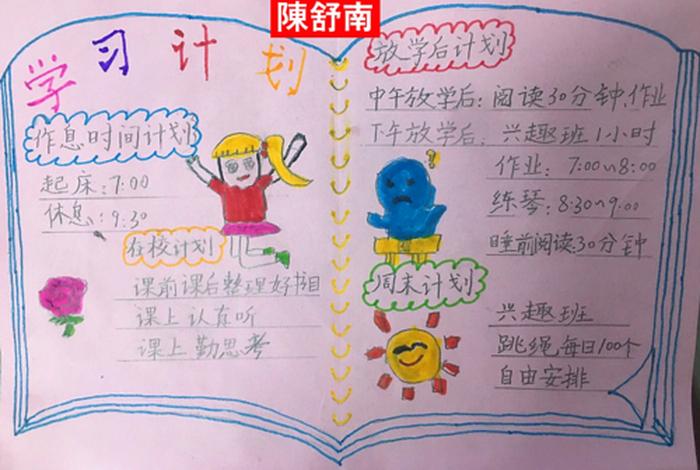 陳舒南
学习计划
作息时间计划
起床:7:00
休息:9:30
在校计划
课前课后整理好书目
课上认真听
课上勤思考
放学后计划
中午放学后:阅读30分钟、作业
下午放学后:兴趣班1小时
作业:7:00~8:00
练琴:8:30~9:00
睡前阅读:30分钟
周末计划
兴趣班
跳绳每日100个
自由安排